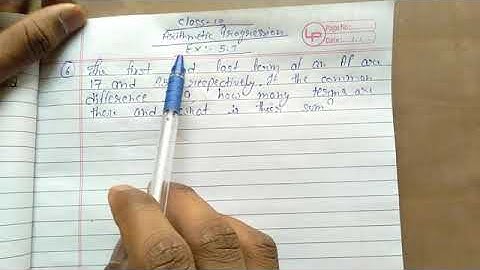 Class-10
Arithmetic Progression
Ex:- 5.3
LP Page No.:
Date:
(6) The first and last term of an AP are
17 and respectively. If the common
difference 9, how many terms are
there and what is their sum